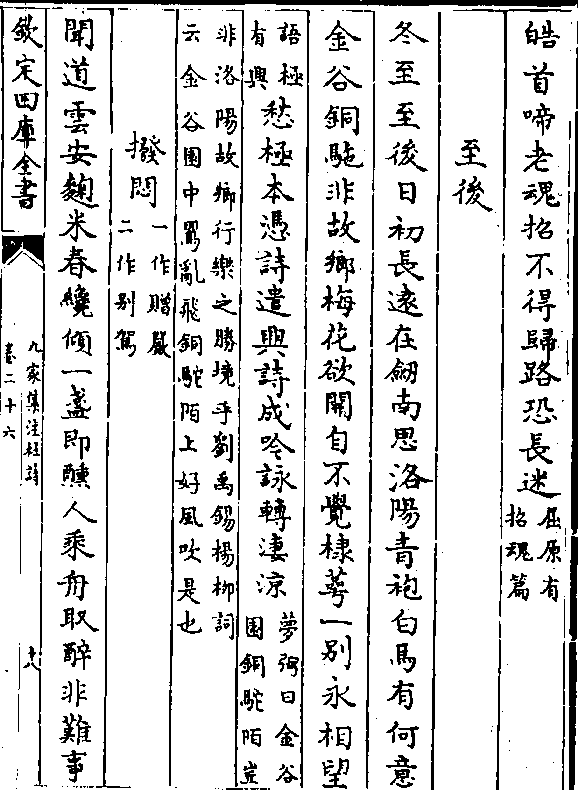 皓首啼老魂招不得歸路恐長迷屈原有招魂篇
至後
冬至至後日初長遠在劒南思洛陽青袍白馬有何意
金谷銅駞非故鄉梅花欲開自不覺棣萼一別永相望
語極有興愁極本憑詩遣興詩成吟詠轉淒涼夢弼曰金谷園銅駝陌豈
非洛陽故鄉行樂之勝境乎劉禹錫楊柳詞云金谷園中鶯亂飛銅駝陌上好風吹是也
撥悶一作贈嚴二作別駕
聞道雲安麴米春纔傾一盞即醺人乘舟取醉非難事
欽定四庫全書
九家集注杜詩
卷二十六
十八